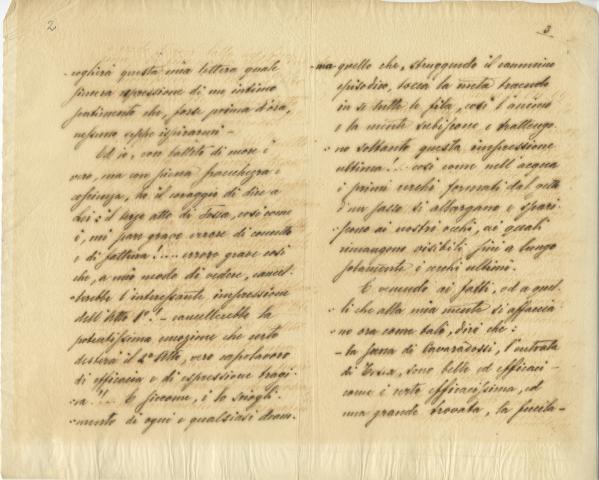 2
-coglierà questa mia lettera quale
sincera espressione di un intimo
sentimento che, forse prima d'ora,
nessuno seppe ispirarmi –
Ed io, con battito di cuore è
vero, ma con piena franchezza e
coscienza, ho il coraggio di dire a
Lei: il terzo atto di Tosca, così come
è, mi pare grave errore di concetto
e di fattura!.... errore grave così
che, a mio modo di vedere, cancel-
-lerebbe l'interessante impressione
dell'Atto 1º! – cancellerebbe la
potentissima emozione che certo
desterà il 2º Atto, vero capolavoro
di efficacia e di espressione tragi-
-ca!!.. E siccome, è lo sciogli-
-mento di ogni e qualsiasi dram-
3
-ma quello che, struggendo il cammino
episodico, tocca la meta traendo
in se tutte le fila, così l'animo
e la mente subiscono e trattengo-
-no soltanto questa impressione
ultima!.. così come nell'acqua
i primi cerchi formati dal getto
d'un sasso si allargano e spari-
scono ai nostri occhi, ai quali
rimangono visibili fin a lungo
solamente i cerchi ultimi.
E venendo ai fatti, od a quel-
-li che alla mia mente si affaccia-
-no ora come tali, dirò che:
– la scena di Cavaradossi, l'entrata
di Tosca, sono belle ed efficaci –
come è certo efficacissima, ed
una grande trovata, la fucila-